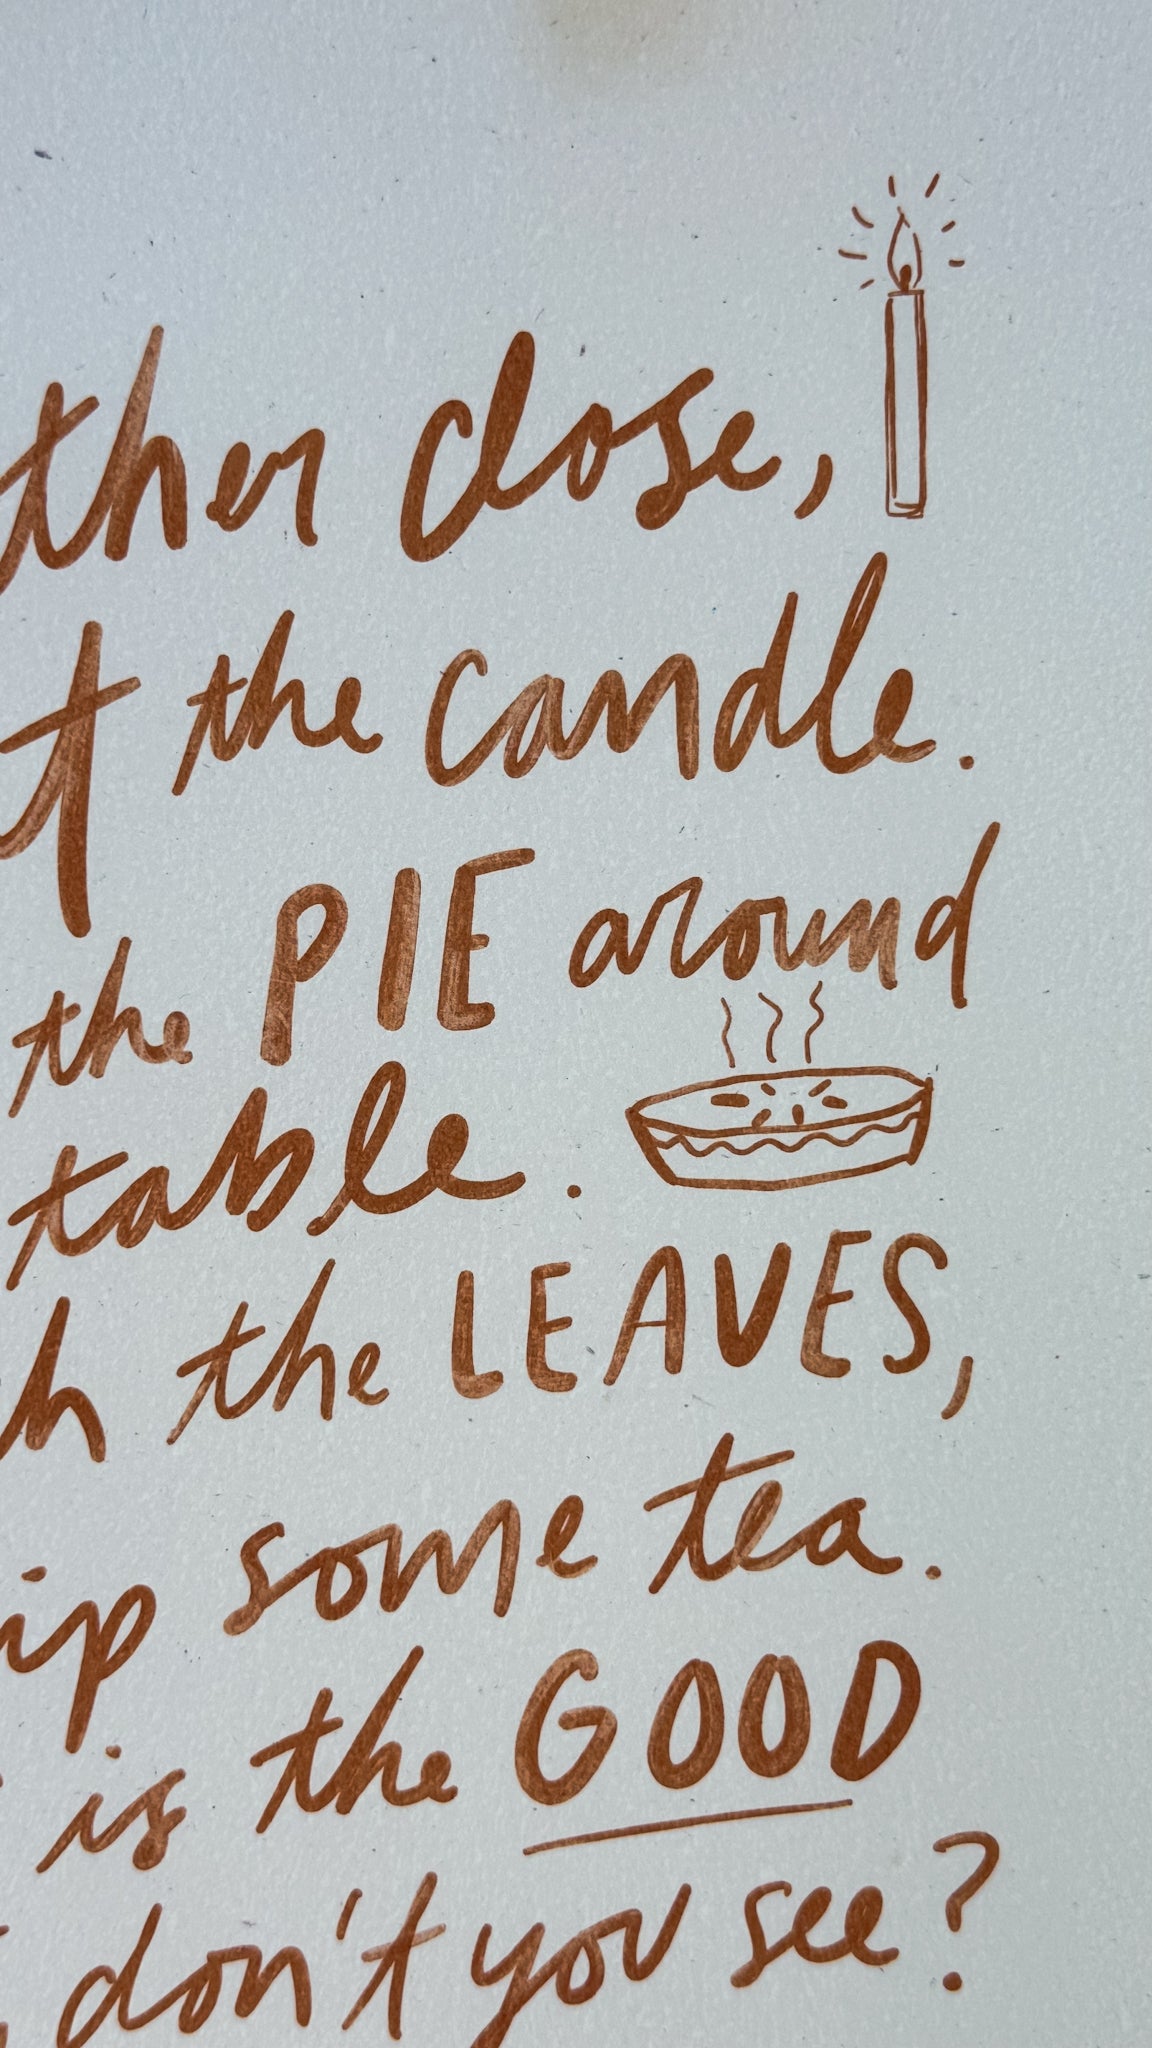 ther close,
t the candle.
the PIE around
table.
h the LEAVES,
ip some tea.
is the GOOD
don't you see?